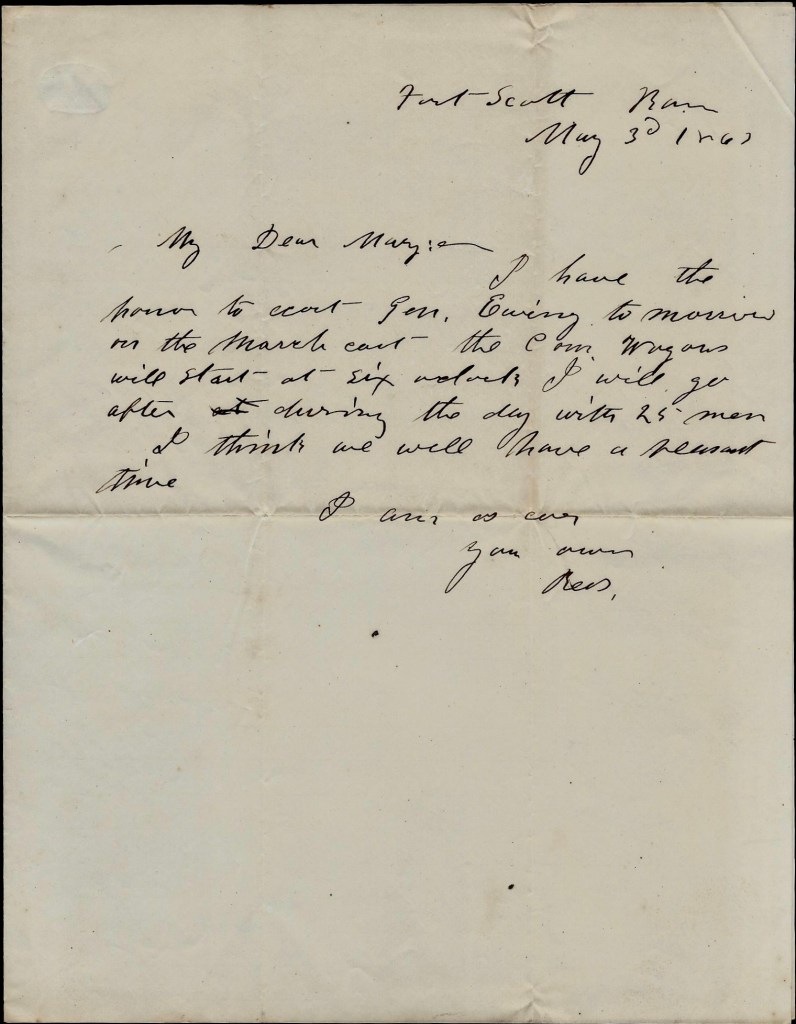 Fort Scott Kan
May 3d 1863
My Dear Mary:
I have the
honor to escort Gen. Ewing to morrow
on the March east the Com. Wagons
will start at six oclock I will go
after at during the day with 25 men
I think we will have a pleasant
time
I am as ever
your own